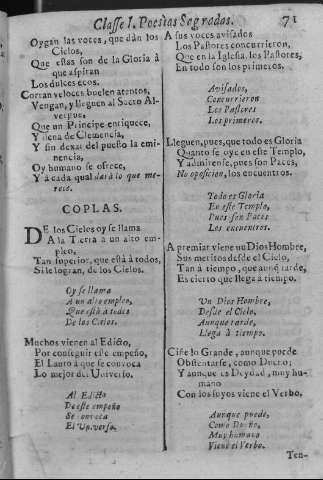 Classe I. Poesias Sagradas. 71
Oygan las voces, que dàn los
Cielos,
Que estas son de la Gloria à
que aspiran
Los dulces ecos.
Corran veloces buelen atentos,
Vengan, y lleguen al Sacro Al-
vergue,
Que un Principe enriquece,
Y llena de Clemencia,
Y sin dexar del puesto la emi-
nencia,
Oy humano se ofrece,
Y à cada qual darà lo que me-
rece.
COPLAS.
DE los Cielos oy se llama
A la Tierra à un alto em-
pleo,
Tan superior, que està à todos,
Si le logran, de los Cielos.
Oy se llama
A un alto empleo,
Que està à todos
De los Cielos.
Muchos vienen al Edicto,
Por conseguir este empeño,
El Lauro à que se convoca
Lo mejor del Universo.
Al Edicto
De este empeño
Se convoca
El Universo.
A sus voces avisados
Los Pastores concurrieron,
Que en la Iglesia, los Pastores,
En todo son los primeros.
Avisados,
Concurrieron
Los Pastores
Los primeros.
Lleguen, pues, que todo es Gloria
Quanto se oye en este Templo,
Y admirense, pues son Paces,
No oposicion, los encuentros.
Todo es Gloria
En este Templo,
Pues son Paces
Los encuentros.
A premiar viene un Dios Hombre,
Sus meritos desde el Cielo,
Tan à tiempo, que aunq̃ tarde,
Es cierto que llega à tiempo.
Un Dios Hombre,
Desde el Cielo,
Aunque tarde,
Llega à tiempo.
Ciñe lo Grande, aunque puede
Obstentarse, como Dueño;
Y aunque es Deydad, muy hu-
mano
Con los suyos viene el Verbo.
Aunque puede,
Como Dueño,
Muy humano
Viene el Verbo.
Ten-